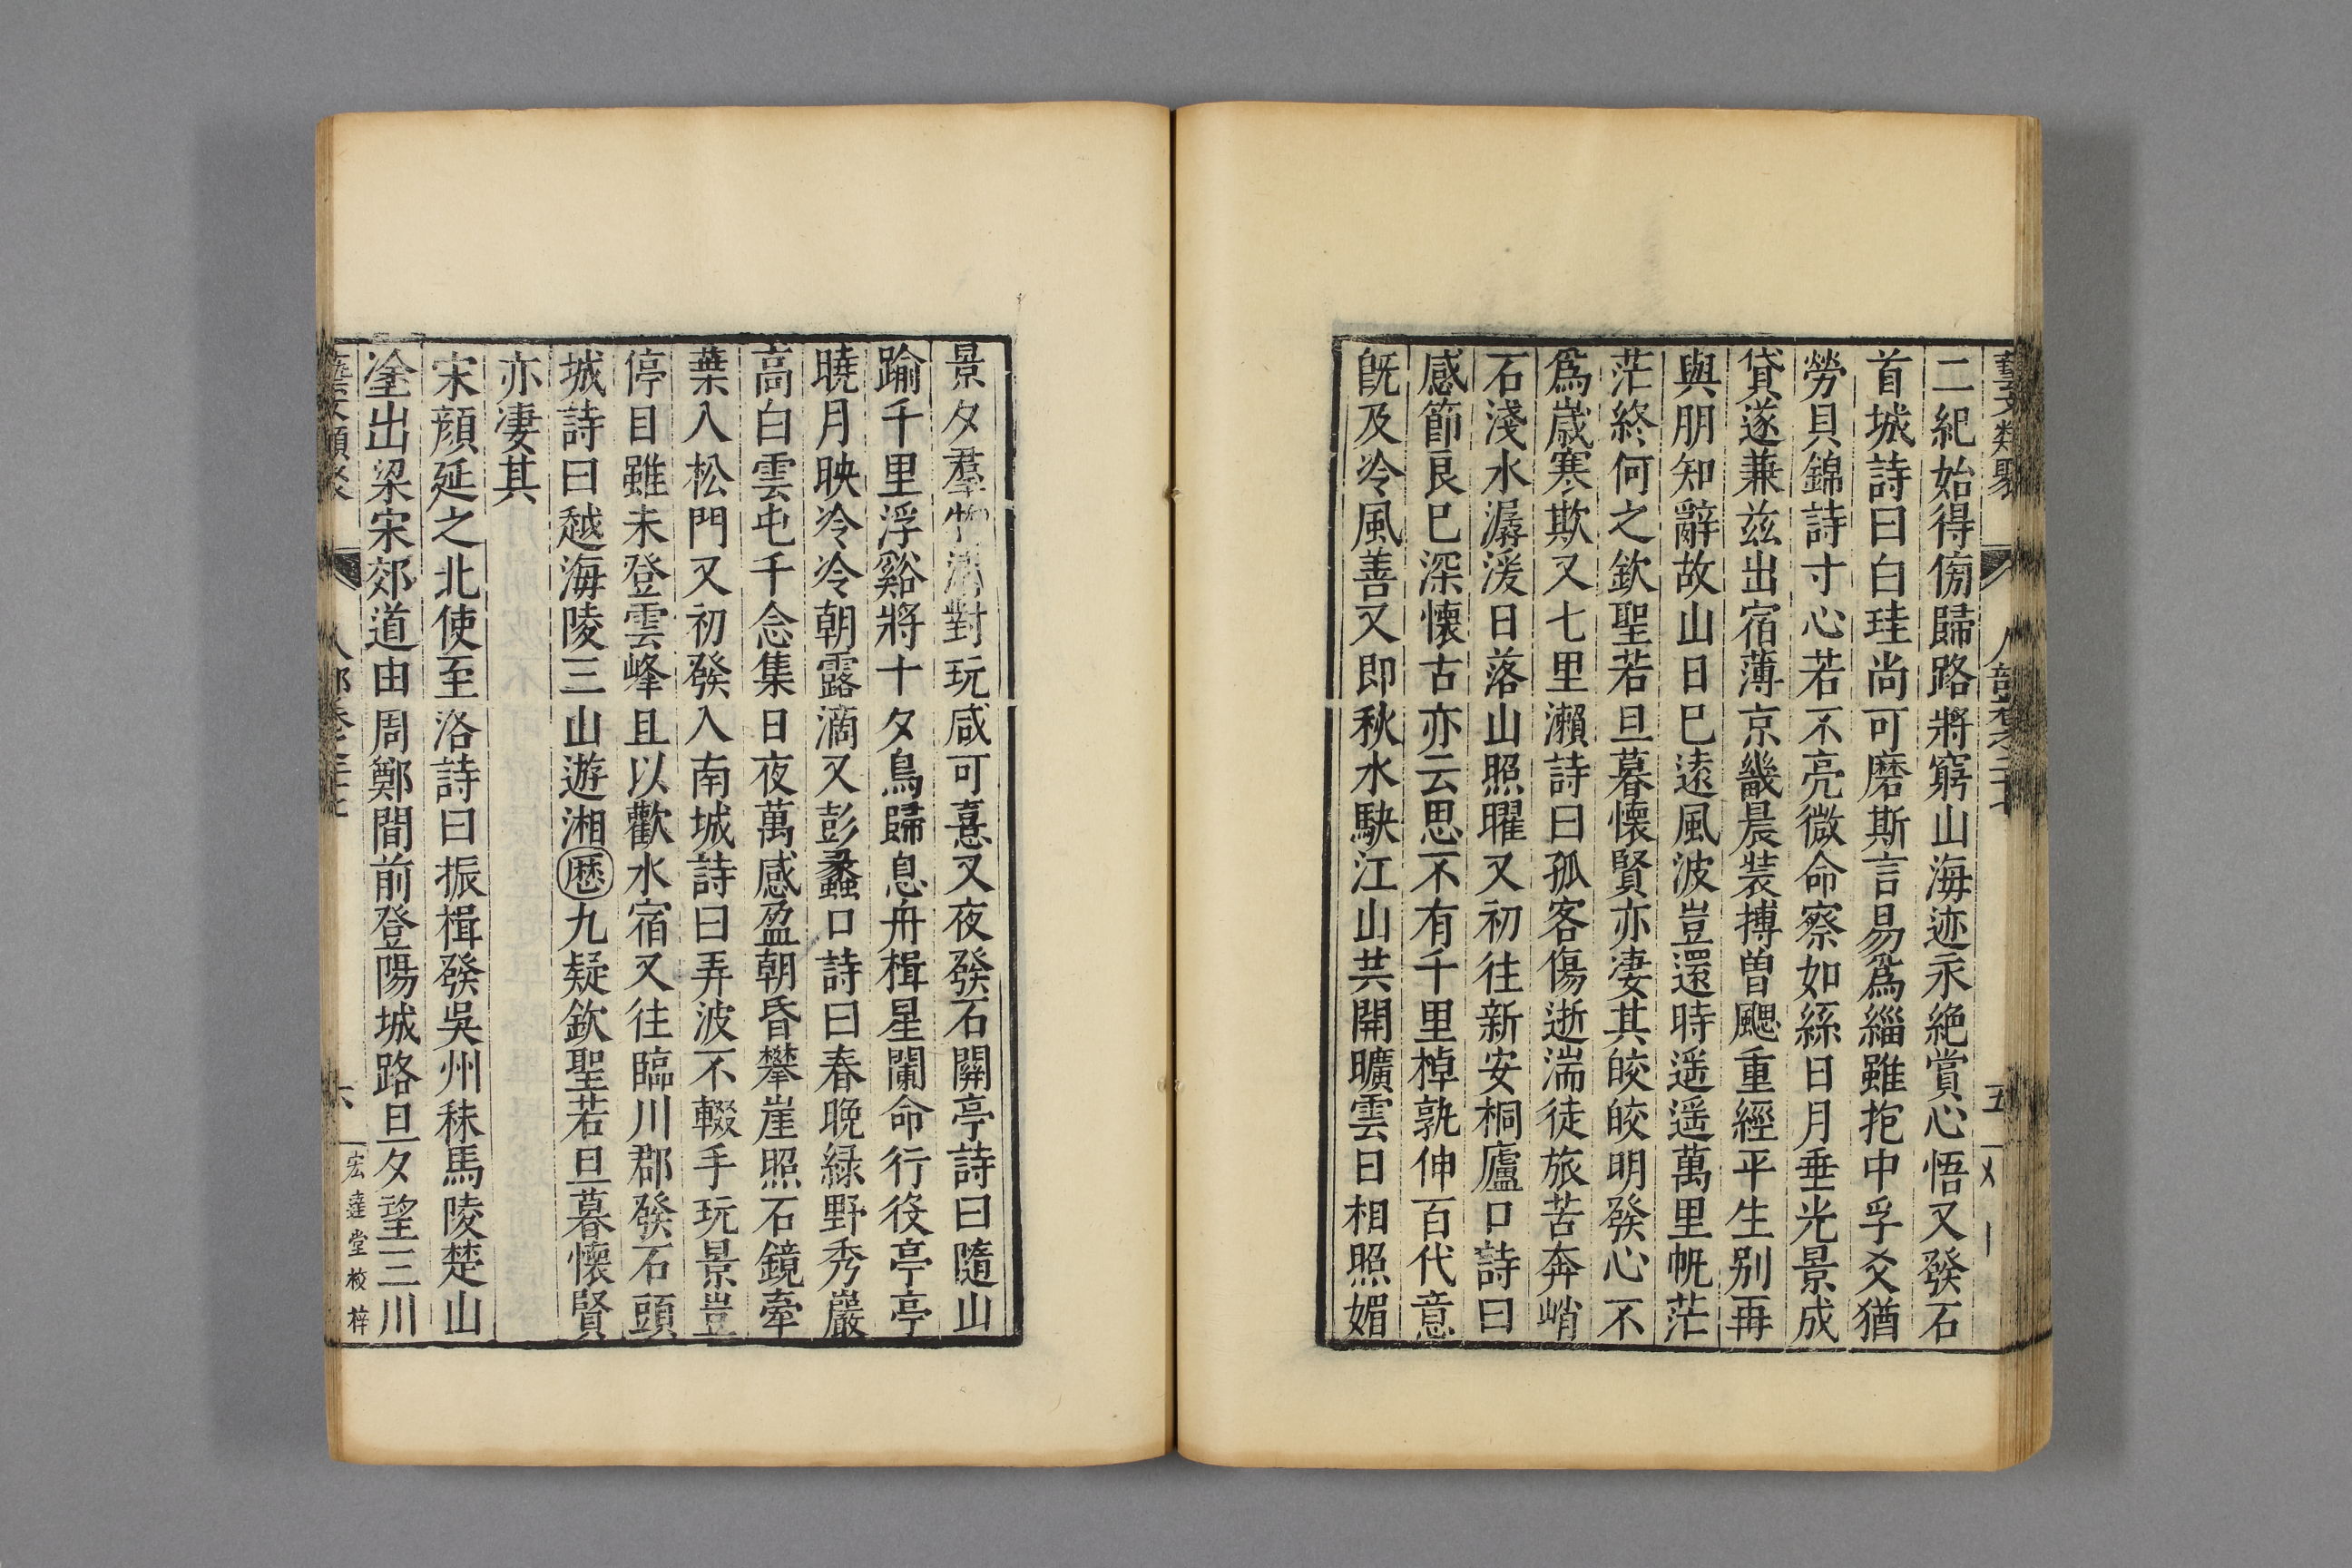 藝文類聚 人部卷二十七 五
二紀始得傍歸路將窮山海迹永絶賞心悟又發石
首城詩曰白珪尚可磨斯言易爲緇雖抱中孚爻猶
勞貝錦詩寸心若不亮微命察如絲日月垂光景成
貸遂兼兹出宿薄京畿晨裝摶曽颸重經平生别再
與朋知辭故山日已遠風波豈還時遥遥萬里帆茫
茫終何之欽聖若旦暮懷賢亦凄其皎皎明發心不
爲歲寒欺又七里瀨詩曰孤客傷逝湍徒旅苦奔峭
石淺水潺湲日落山照曜又初往新安桐廬口詩曰
感節良已深懷古亦云思不有千里棹孰伸百代意
旣及冷風善又即秋水駃江山共開曠雲日相照媚
景夕羣物清對玩咸可憙又夜發石關亭詩曰隨山
踰千里浮谿將十夕鳥歸息舟楫星闌命行役亭亭
曉月映冷冷朝露滴又彭蠡口詩曰春晚緑野秀巖
高白雲屯千念集日夜萬感盈朝昏攀崖照石鏡牽
葉入松門又初發入南城詩曰弄波不輟手玩景豈
停目雖未登雲峰且以歡水宿又往臨川郡發石頭
城詩曰越海陵三山遊湘歷九疑欽聖若旦暮懷賢
亦凄其
宋顔延之北使至洛詩曰振楫發吳州秣馬陵楚山
塗出梁宋郊道由周鄭間前登陽城路旦夕望三川
藝文類聚 人部卷二十七 六 宏達堂校梓